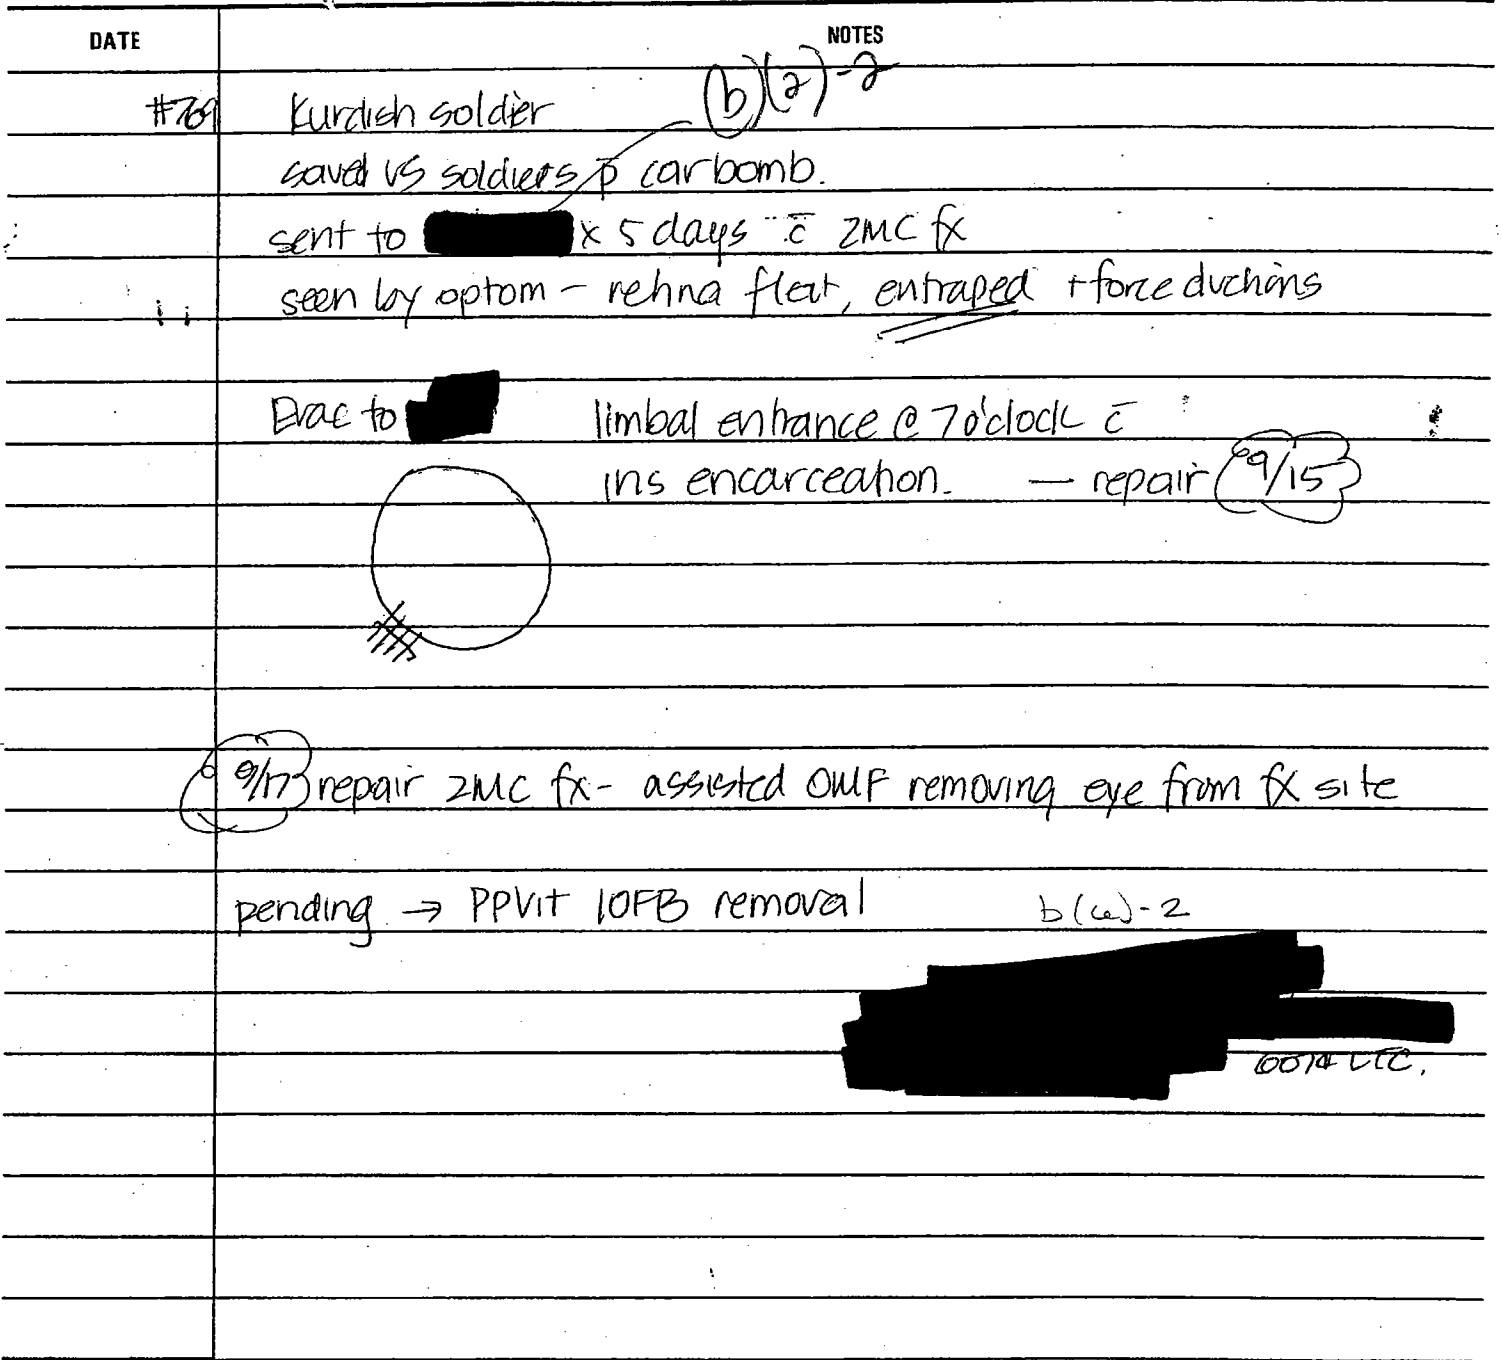 DATE NOTES
(b)(2)-2
#769 Kurdish soldier
saved US soldiers p̄ car bomb.
sent to x 5 days c̄ ZMC fx
seen by optom - retina flat, entraped + force ductions
Evac to limbal entrance @ 7 o'clock c̄
iris encarceation. — repair 9/15
9/17 repair ZMC fx - assisted OMF removing eye from fx site
pending → PPVit IOFB removal b(6)-2
LTC.